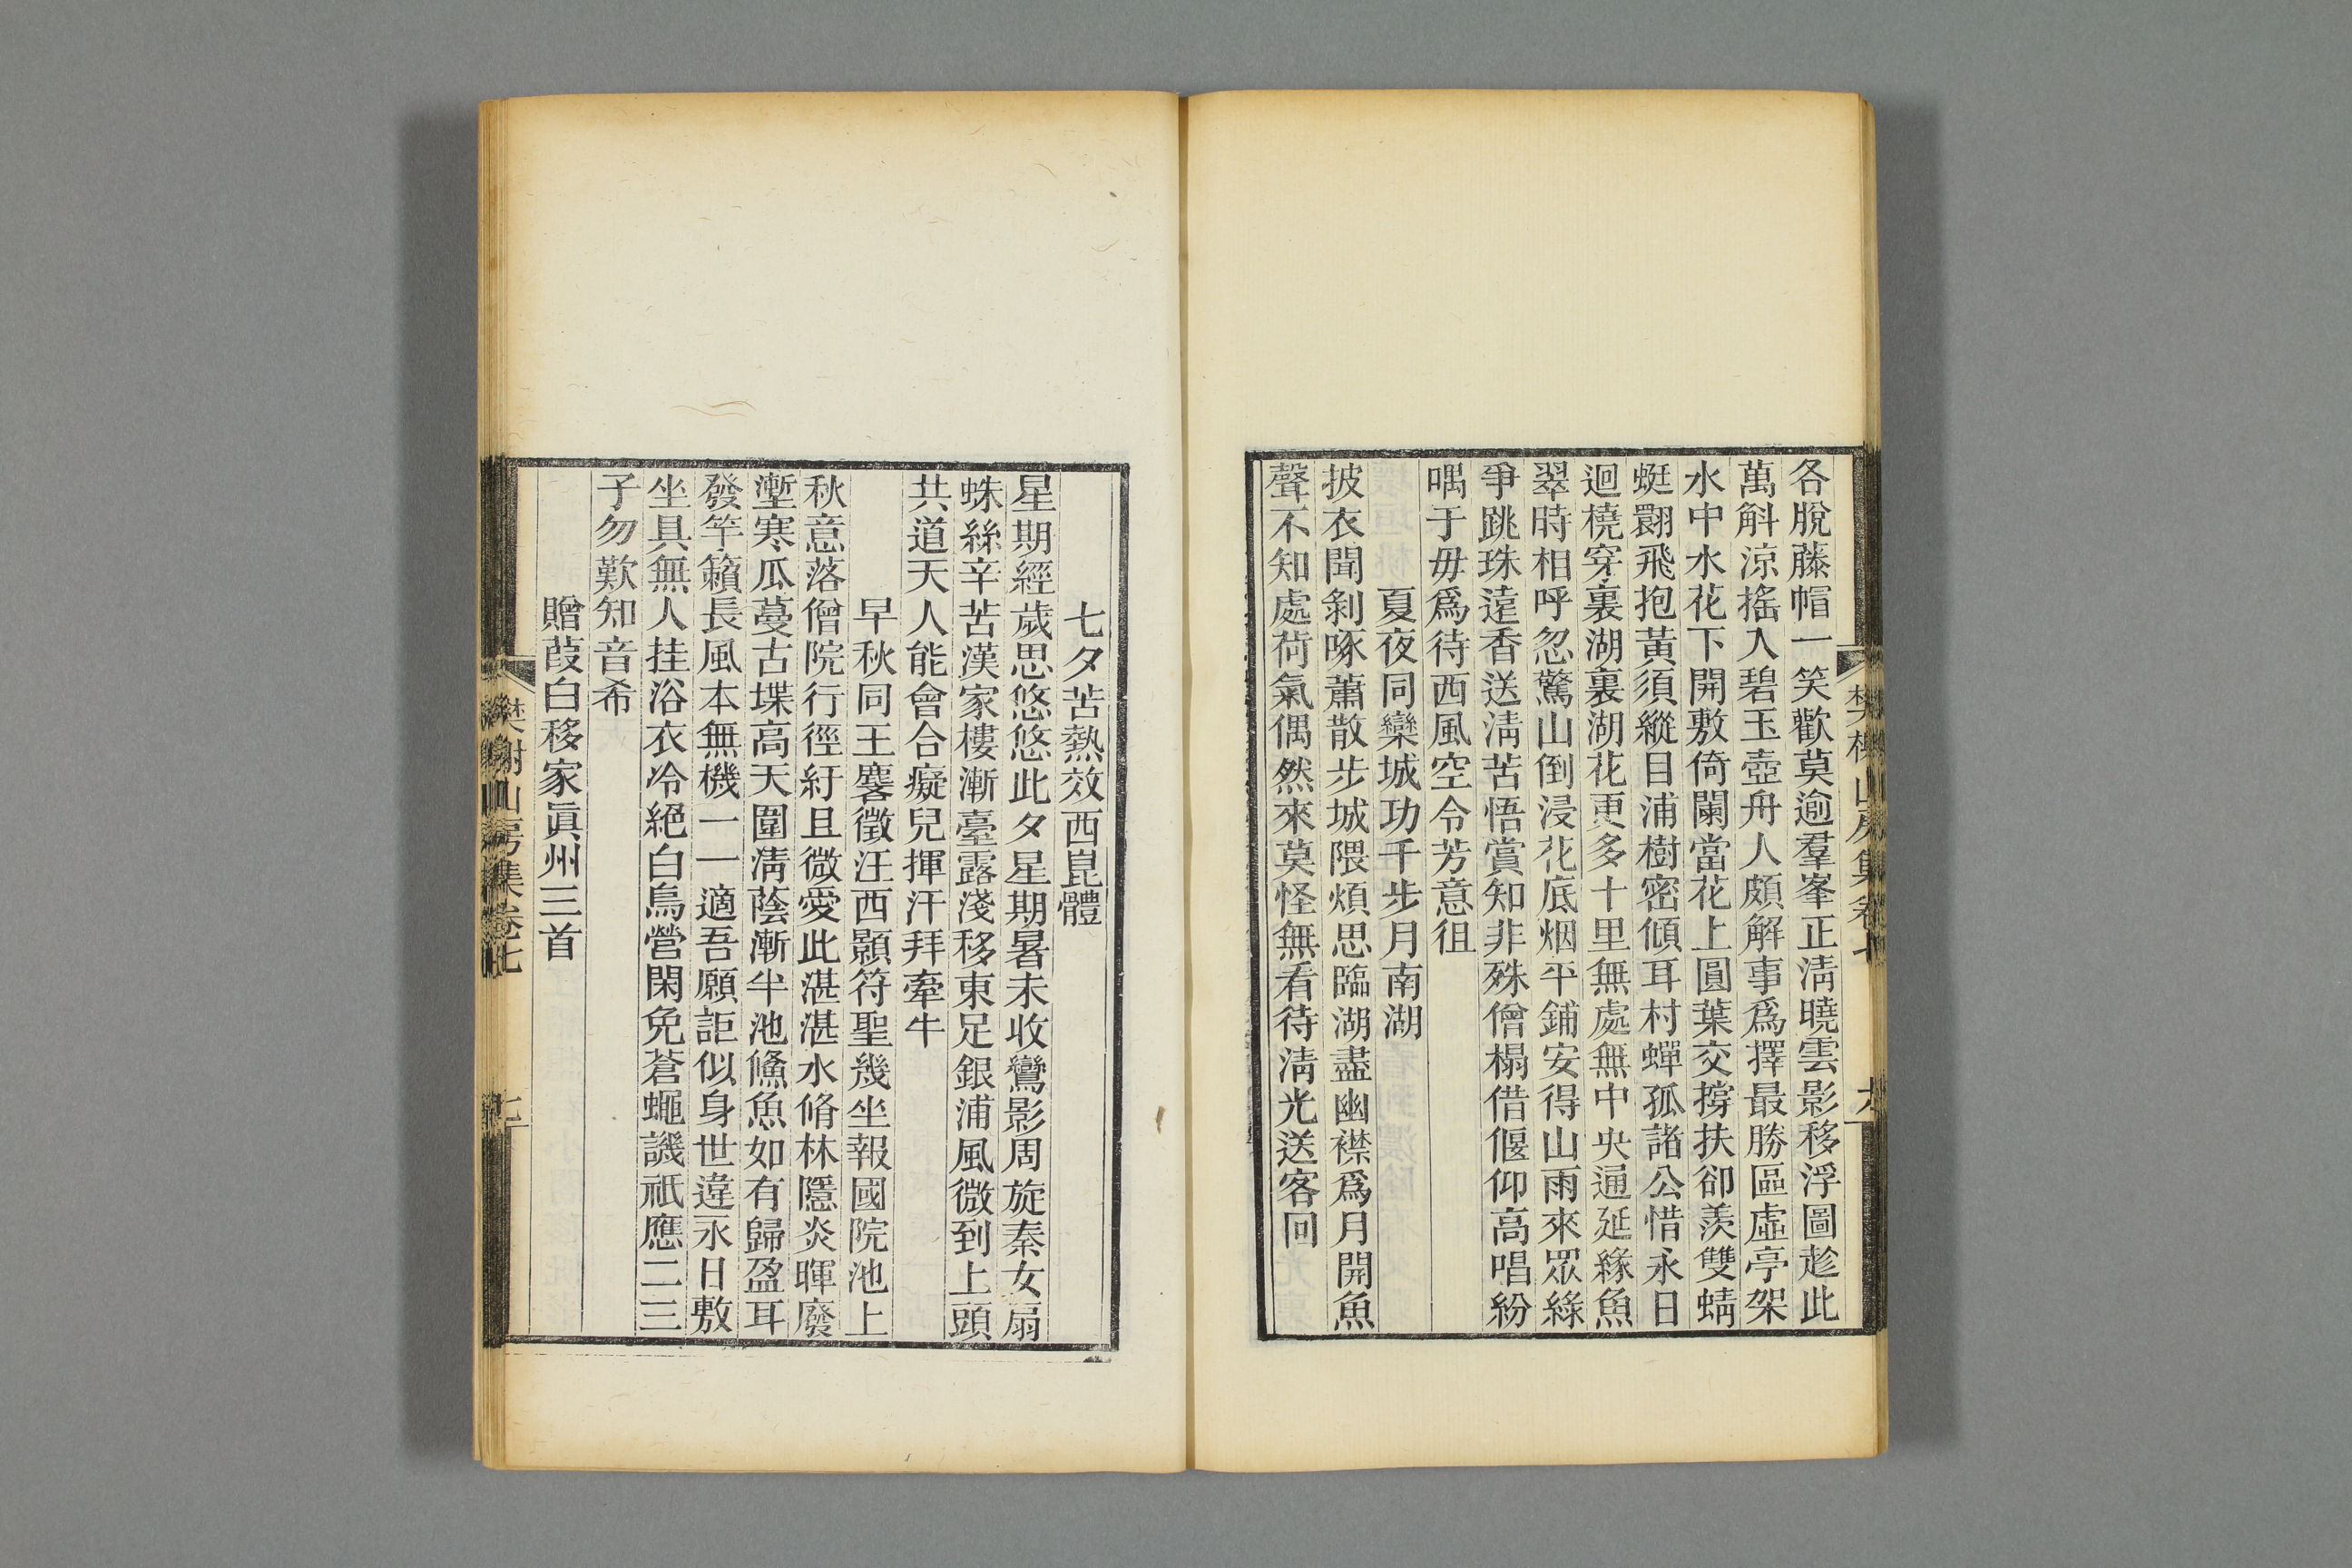 各脫藤帽一笑歡莫逾羣峯正淸曉雲影移浮圖趁此
萬斛涼搖入碧玉壺舟人頗解事爲擇最勝區虛亭架
水中水花下開敷倚闌當花上圓葉交撐扶卻羨雙蜻
蜓翾飛抱黃須縱目浦樹密傾耳村蟬孤諸公惜永日
迴橈穿裏湖裏湖花更多十里無處無中央通延緣魚
翠時相呼忽驚山倒浸花底烟平鋪安得山雨來眾綠
爭跳珠遠香送淸苦悟賞知非殊僧榻借偃仰高唱紛
喁于毋爲待西風空令芳意徂
夏夜同欒城功千步月南湖
披衣聞剝啄蕭散步城隈煩思臨湖盡幽襟爲月開魚
聲不知處荷氣偶然來莫怪無看待淸光送客回
樊榭山房集卷七
六
七夕苦熱效西崑體
星期經歲思悠悠此夕星期暑未收鸞影周旋秦女扇
蛛絲辛苦漢家樓漸臺露淺移東足銀浦風微到上頭
共道天人能會合癡兒揮汗拜牽牛
早秋同王麐徵汪西顥符聖幾坐報國院池上
秋意落僧院行徑紆且微愛此湛湛水脩林隱炎暉廢
塹寒瓜蔓古堞高天圍淸蔭漸半池鯈魚如有歸盈耳
發竿籟長風本無機一一適吾願詎似身世違永日敷
坐具無人挂浴衣冷絕白鳥營閑免蒼蠅譏祇應二三
子勿歎知音希
贈葭白移家眞州三首
樊榭山房集卷七
七